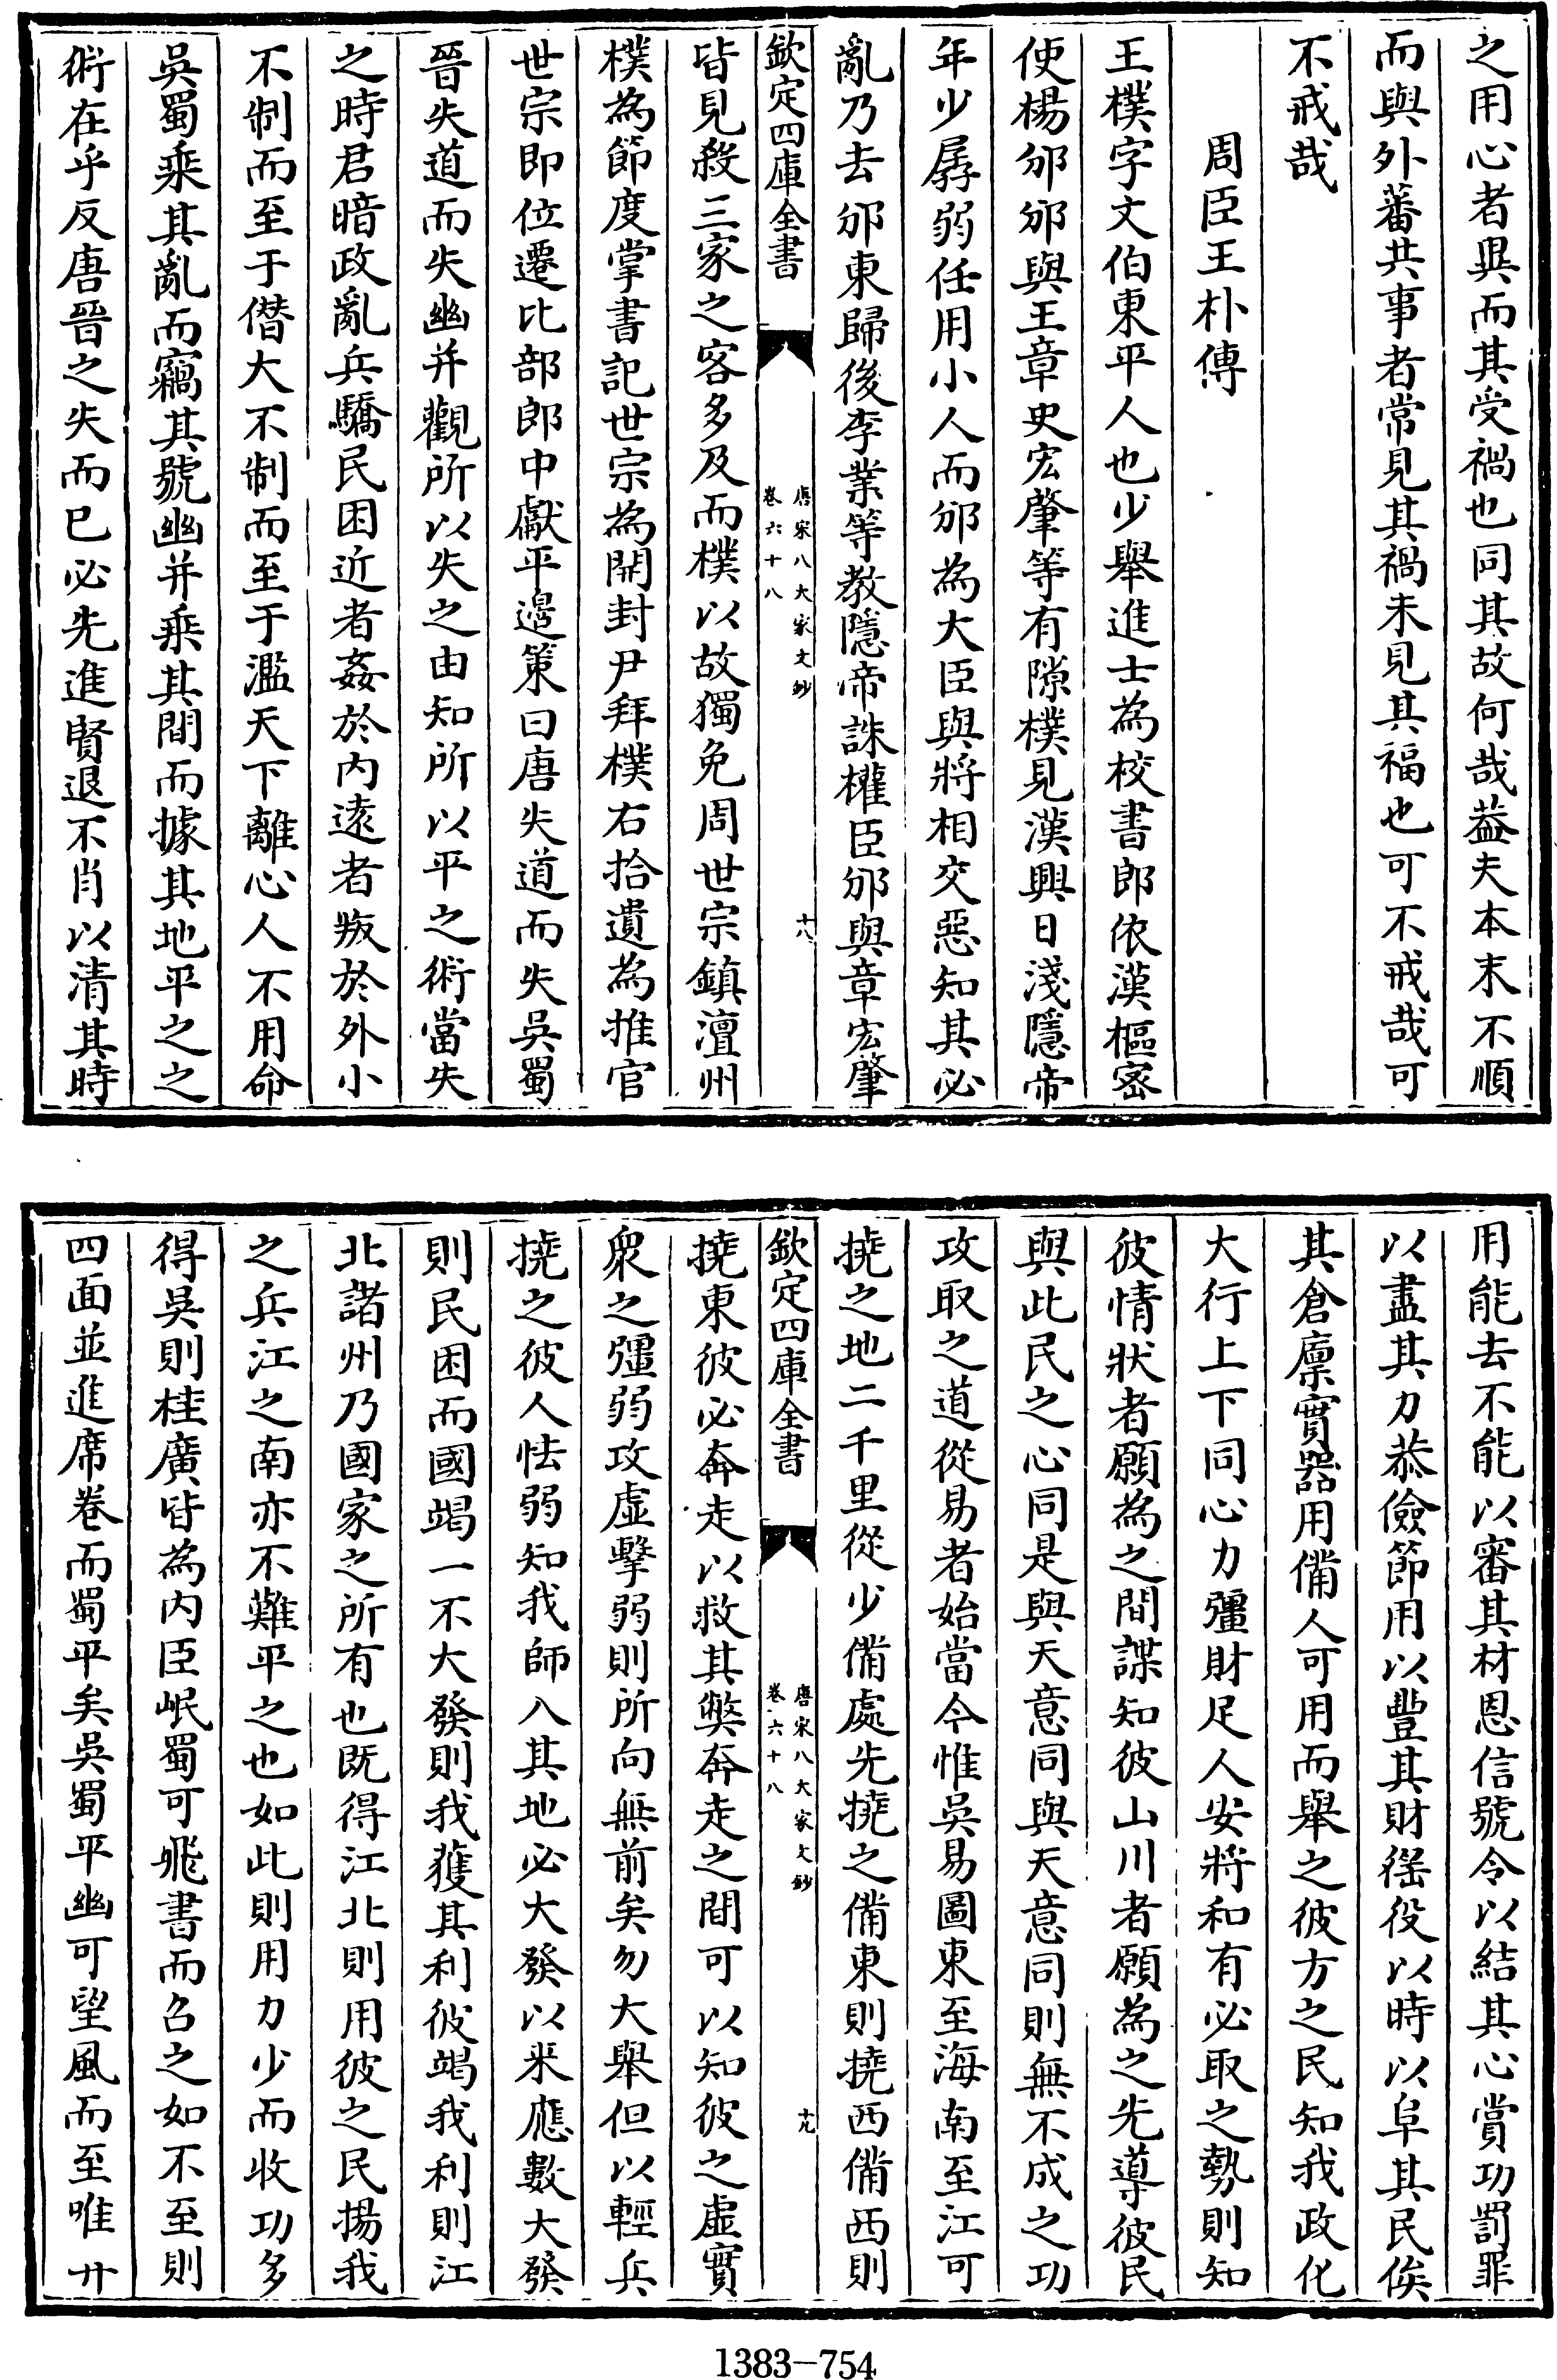 之用心者異而其受禍也同其故何哉葢夫本末不順
而與外蕃共事者常見其禍未見其福也可不戒哉可
不戒哉
周臣王朴傳
王樸字文伯東平人也少舉進士為校書郎依漢樞密
使楊邠邠與王章史宏肇等有隙樸見漢興日淺隱帝
年少孱弱任用小人而邠為大臣與將相交惡知其必
亂乃去邠東歸後李業等教隱帝誅權臣邠與章宏肇
欽定四庫全書
唐宋八大家文鈔
卷六十八
十八
皆見殺三家之客多及而樸以故獨免周世宗鎮澶州
樸為節度掌書記世宗為開封尹拜樸右拾遺為推官
世宗即位遷比部郎中獻平邊策曰唐失道而失吳蜀
晉失道而失幽并觀所以失之由知所以平之術當失
之時君暗政亂兵驕民困近者姦於内遠者叛於外小
不制而至于僭大不制而至于濫天下離心人不用命
吳蜀乘其亂而竊其號幽并乘其間而據其地平之之
術在乎反唐晉之失而已必先進賢退不肖以清其時
用能去不能以審其材恩信號令以結其心賞功罰罪
以盡其力恭儉節用以豐其財徭役以時以阜其民俟
其倉廩實器用備人可用而舉之彼方之民知我政化
大行上下同心力彊財足人安將和有必取之勢則知
彼情狀者願為之間諜知彼山川者願為之先導彼民
與此民之心同是與天意同與天意同則無不成之功
攻取之道從易者始當今惟吳易圖東至海南至江可
撓之地二千里從少備處先撓之備東則撓西備西則
欽定四庫全書
唐宋八大家文鈔
卷六十八
十九
撓東彼必奔走以救其弊奔走之間可以知彼之虛實
衆之彊弱攻虛擊弱則所向無前矣勿大舉但以輕兵
撓之彼人怯弱知我師入其地必大發以来應數大發
則民困而國竭一不大發則我獲其利彼竭我利則江
北諸州乃國家之所有也既得江北則用彼之民揚我
之兵江之南亦不難平之也如此則用力少而收功多
得吳則桂廣皆為内臣岷蜀可飛書而召之如不至則
四面並進席卷而蜀平矣吳蜀平幽可望風而至唯廾
1383-754